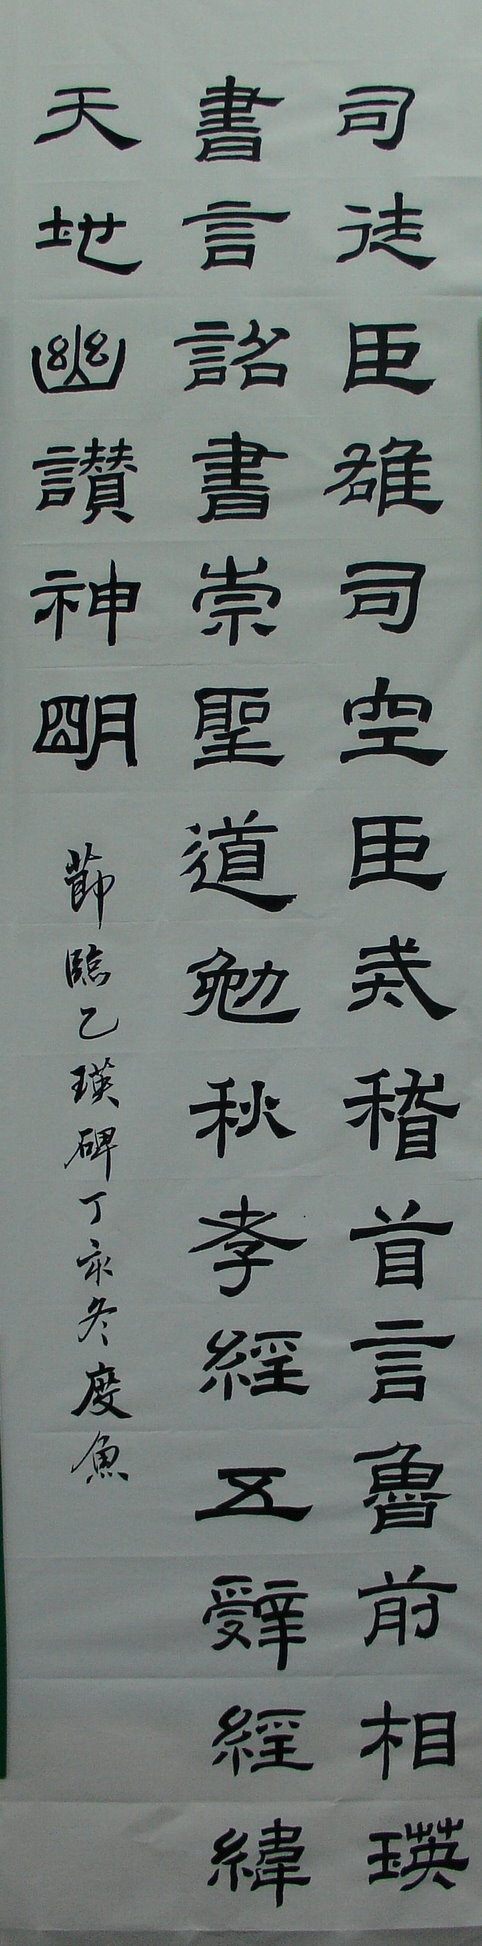 司徒臣雄司空臣戒稽首言魯前相瑛
書言詔書崇聖道勉秋孝經五辭經緯
天地幽讃神明
節臨乙瑛碑丁亥冬度魚